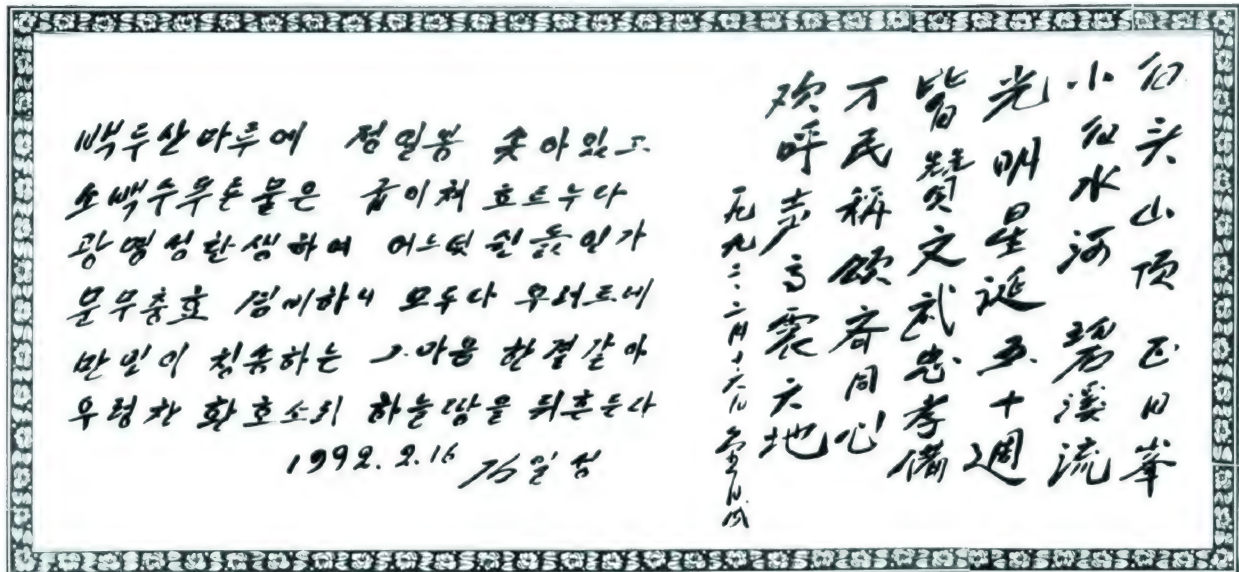 백두산마루에 정일봉 솟아있고
소백수푸른물은 굽이쳐 흐르누나
광명성탄생하여 어느덧 쉰돐인가
문무충효 겸비하니 모두다 우러르네
만민이 칭송하는 그마음 한결같아
우렁찬 환호소리 하늘땅을 뒤흔든다
1992. 2.16 김일성
白头山顶 正日峯
小白水河 碧溪流
光明星诞五十週
皆贊文武忠孝備
万民稱頌齐同心
欢呼声高震天地
一九九二·二月十六日 金日成